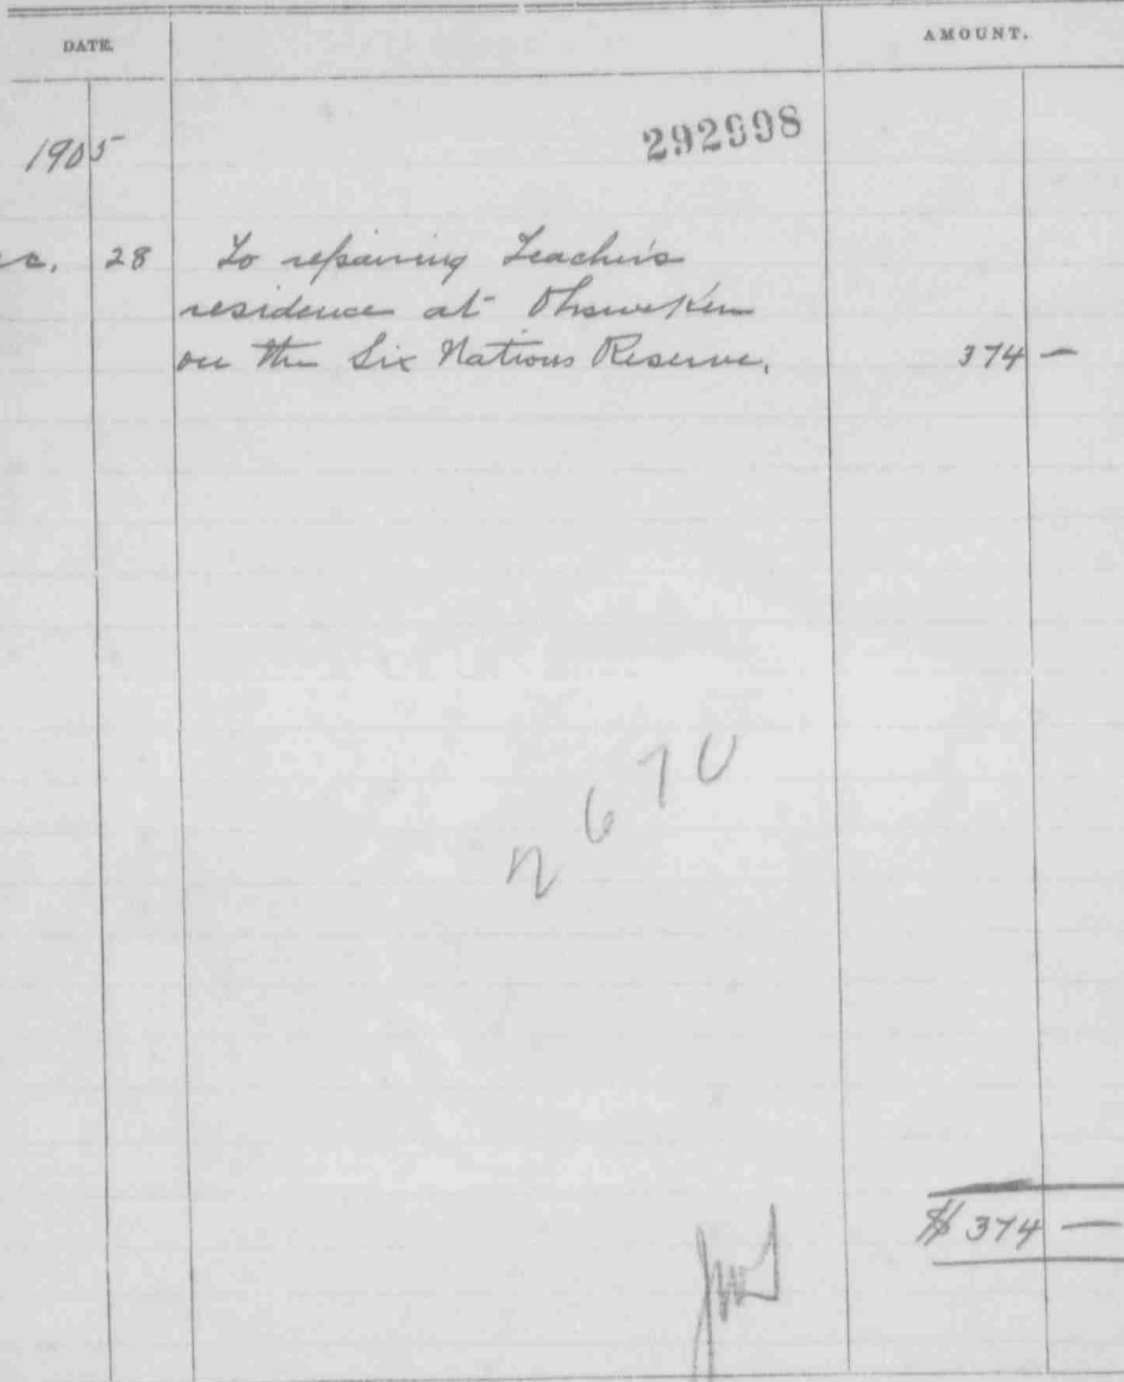 DATE. AMOUNT.
292998
1905
c. 28 To repairing Teacher's
residence at Ohsweken
on the Six Nations Reserve. 374 —
n 670
$374 —